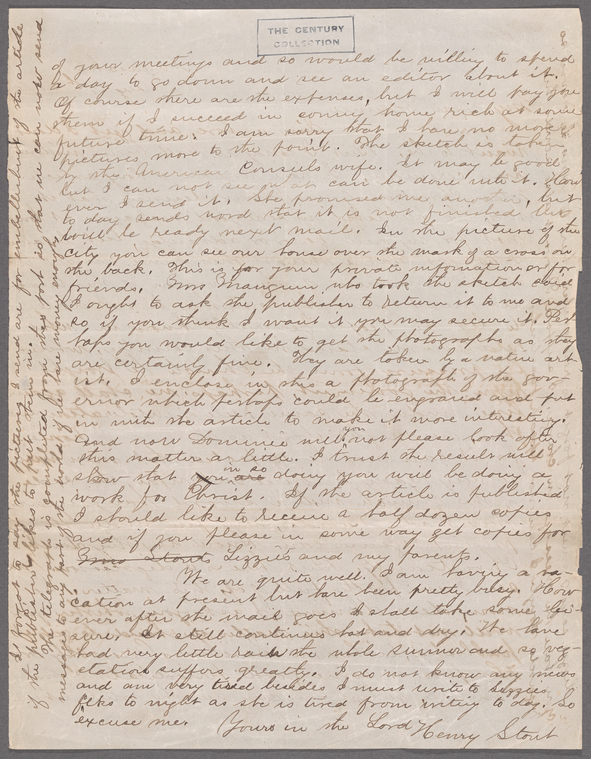 THE CENTURY
COLLECTION
of your meetings and so would be willing to spend
a day to go down and see an editor about it.
Of course there are the expenses, but I will pay you
them if I succeed in coming home rich at some
future time. I am sorry that I have no more
pictures more to the point. The sketch is taken
by the American Consuls wife. It may be good
but I can not see what can be done with it. How
ever I send it. She promised me another, but
to day sends word that it is not finished but
will be ready next mail. In the picture of the
city you can see our house over the mark of a cross on
the back. This is for your private information or for
friends. Mrs Mangum who took the sketch said
I ought to ask the publisher to return it to me and
so if you think I want it you may secure it. Per
haps you would like to get the photographs as they
are certainly fine. They are taken by a native art
ist. I enclose in this a photograph of the gov-
ernor which perhaps could be engraved and put
in with the article to make it more interesting.
And now Dominie will you not please look after
this matter a little. I trust the results will
show that in so doing you will be doing a
work for Christ. If the article is published
I should like to receive a half dozen copies
and if you please in some way get copies for
Lizzie's and my parents.
We are quite well. I am having a va-
cation at present but have been pretty busy. How
ever after the mail goes I shall take some lei-
sure. It still continues hot and dry. We have
had very little rain the whole summer and so veg-
etation suffers greatly. I do not know any news
and am very tired besides I must write to Lizzies
folks to night as she is tired from writing to day. So
excuse me. Yours in the Lord Henry Stout
I forgot to say the pictures I send are for embellishment of the article
if the publisher likes to put them in.
The telegraph is completed from this port so that we can now send
messages to any part of the world if we have money enough.